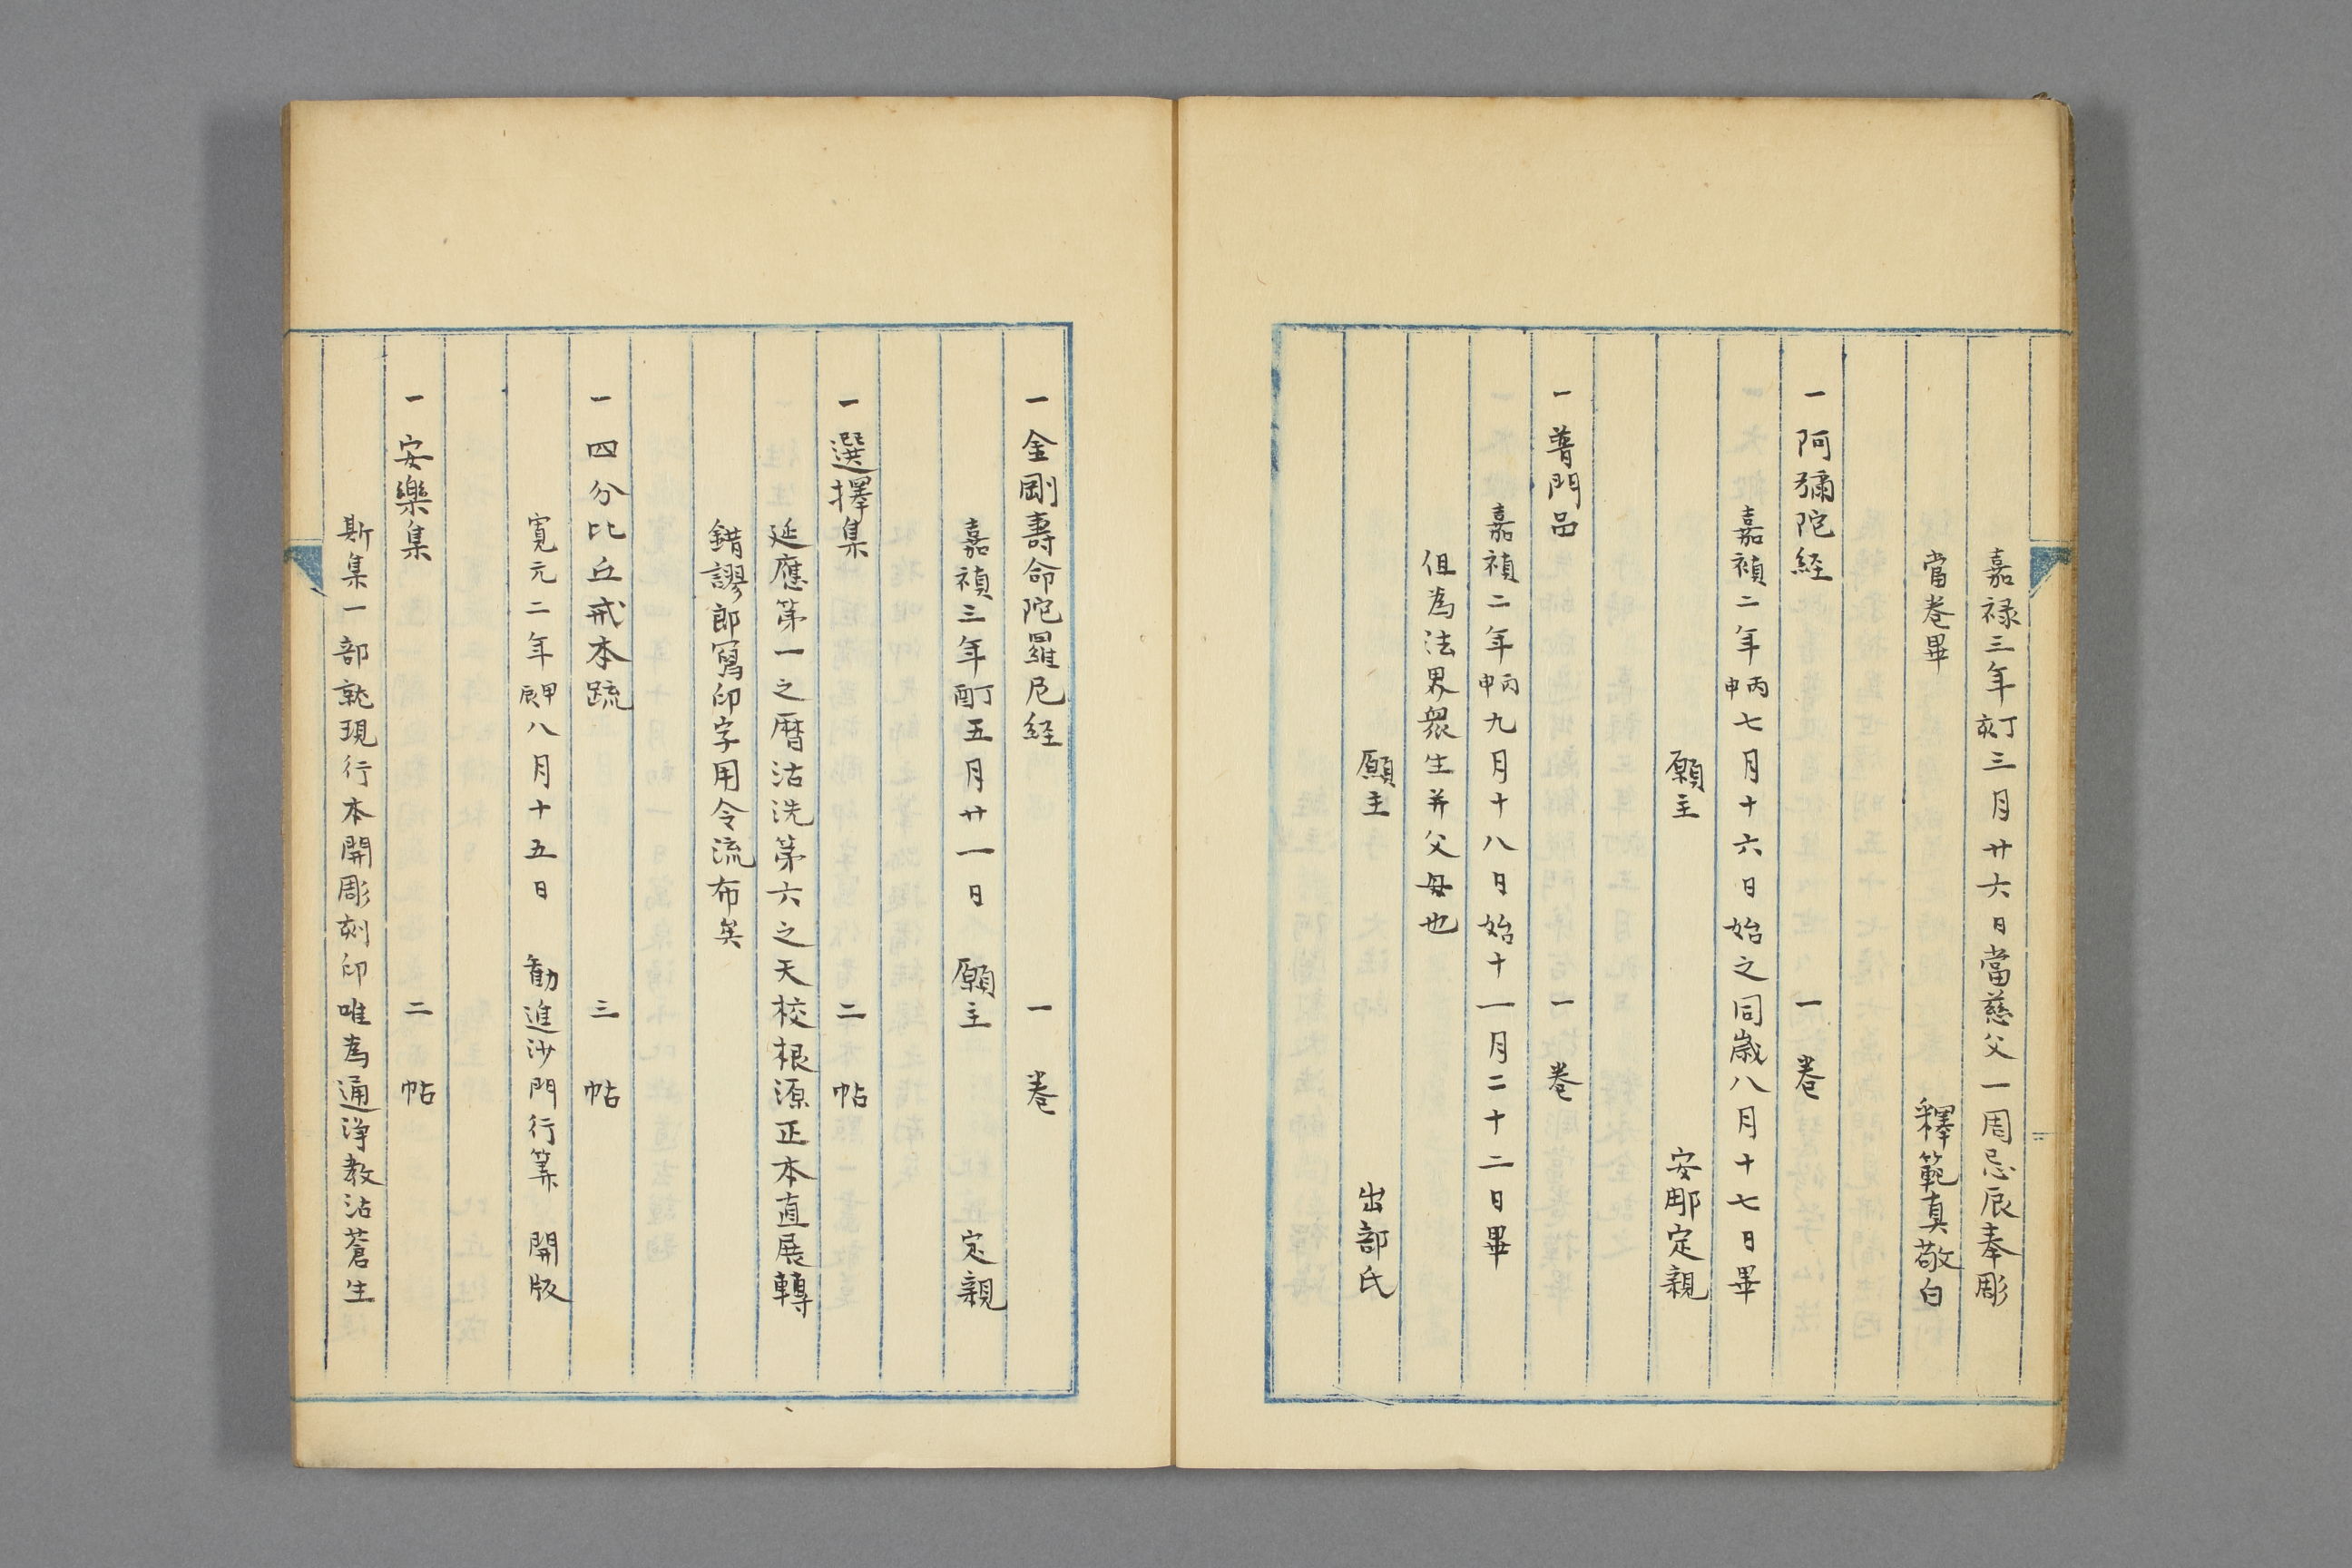 嘉禄三年丁亥三月廿六日當慈父一周忌辰奉彫
當卷畢　釋範真敬白
一阿彌陀経　一卷
嘉禎二年丙申七月十六日始之同歳八月十七日畢
願主　安那定親
一普門品　一卷
嘉禎二年丙申九月十八日始十一月二十二日畢
但為法界衆生并父母也
願主　出部氏
一金剛壽命陀羅尼経　一卷
嘉禎三年丁酉五月廿一日　願主　定親
一選擇集　二帖
延應第一之暦沽洗第六之天校根源正本直展轉
錯謬郎寫印字用令流布矣
一四分比丘戒本疏　三帖
寛元二年甲辰八月十五日　勧進沙門行筭　開版
一安樂集　二帖
斯集一部就現行本開彫刻印唯為通浄教沾蒼生